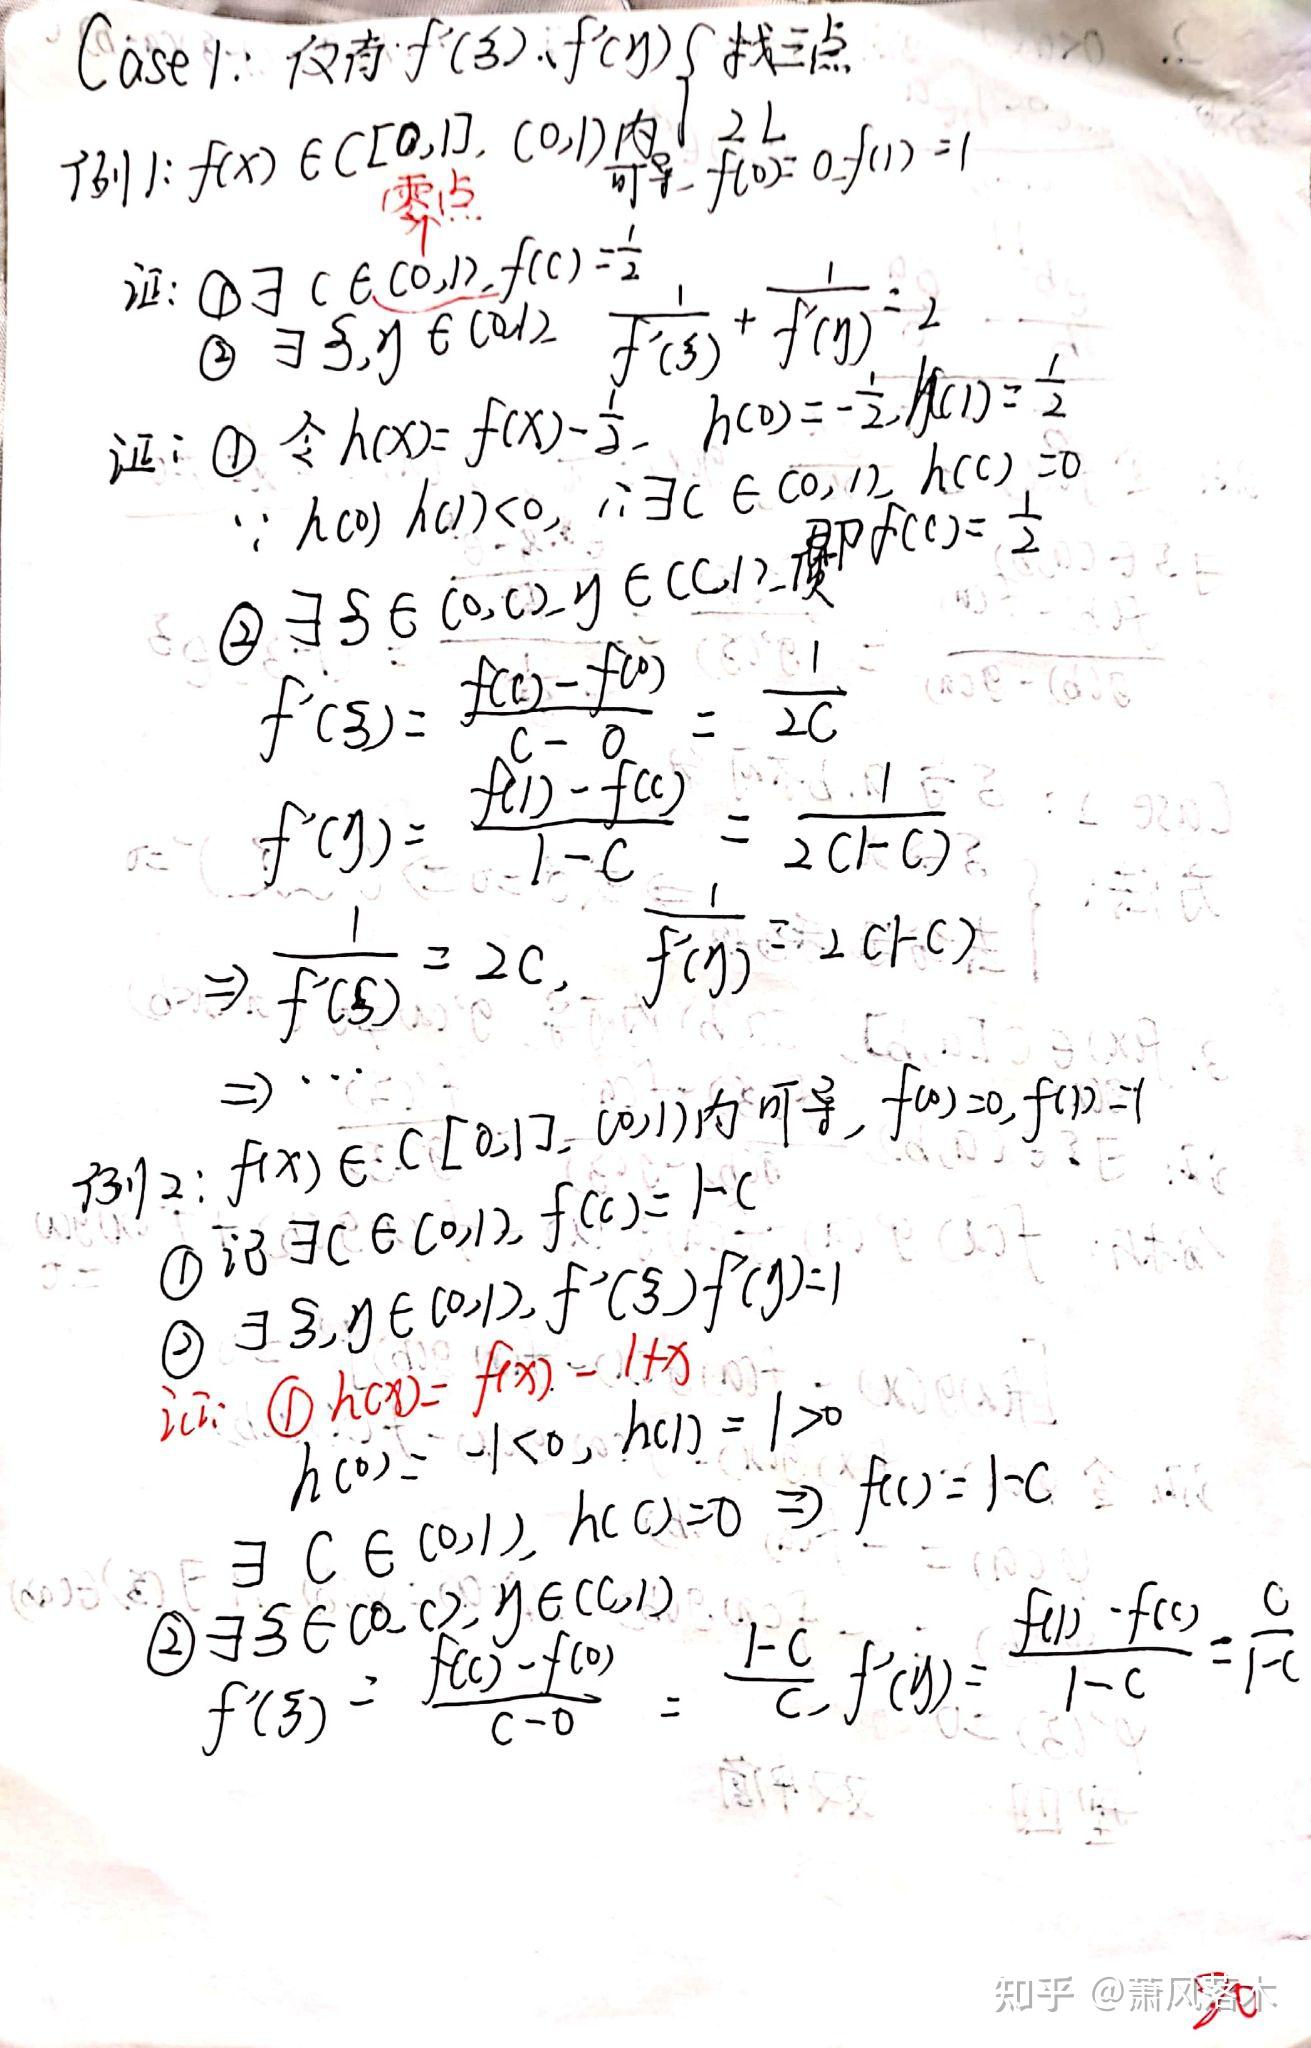 Case 1: 仅有 f'(ξ)、f'(η) { 找三点
2L
例1: f(x) ∈ C[0,1], (0,1)内可导, f(0)=0, f(1)=1
零点
证: ① ∃ c ∈ (0,1), f(c) = 1/2
② ∃ ξ,η ∈ (0,1), 1/f'(ξ) + 1/f'(η) = 2
证: ① 令 h(x) = f(x) - 1/2, h(0) = -1/2, h(1) = 1/2
∵ h(0) h(1) < 0, ∴ ∃ c ∈ (0,1), h(c) = 0
即 f(c) = 1/2
② ∃ ξ ∈ (0,c), η ∈ (c,1), 使
f'(ξ) = (f(c) - f(0))/(c - 0) = 1/(2c)
f'(η) = (f(1) - f(c))/(1 - c) = 1/(2(1-c))
⇒ 1/f'(ξ) = 2c, 1/f'(η) = 2(1-c)
⇒ ...
例2: f(x) ∈ C[0,1], (0,1)内可导, f(0)=0, f(1)=1
① 证 ∃ c ∈ (0,1), f(c) = 1-c
② ∃ ξ,η ∈ (0,1), f'(ξ) f'(η) = 1
证: ① h(x) = f(x) - 1+x
h(0) = -1 < 0, h(1) = 1 > 0
∃ c ∈ (0,1), h(c) = 0 ⇒ f(c) = 1-c
② ∃ ξ ∈ (0,c), η ∈ (c,1)
f'(ξ) = (f(c) - f(0))/(c - 0) = (1-c)/c, f'(η) = (f(1) - f(c))/(1-c) = c/(1-c)
知乎 @萧风落木